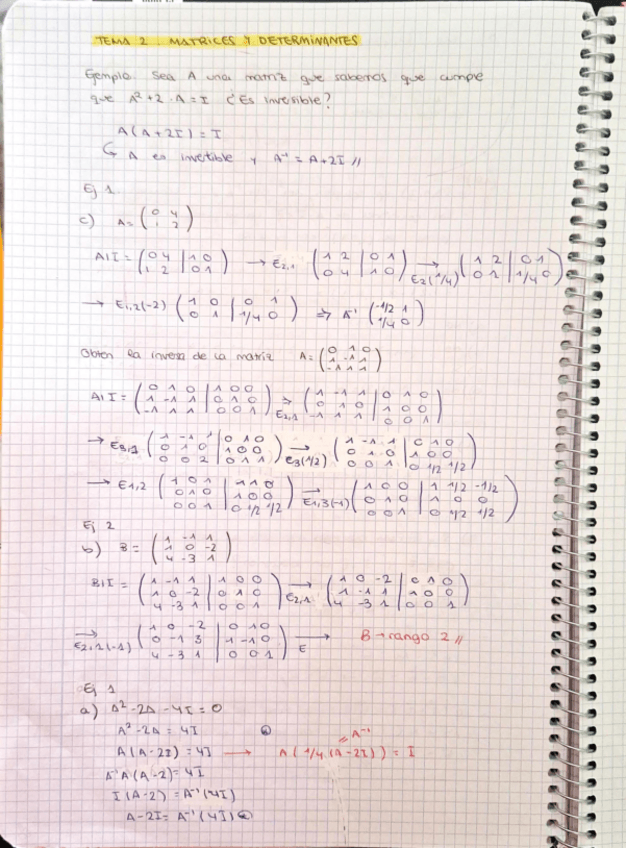 TEMA 2. MATRICES Y DETERMINANTES
Ejemplo. Sea A una matriz que sabemos que cumple
que A² + 2·A = I ¿Es invesible?
A(A + 2I) = I
↳ A es invertible y A⁻¹ = A + 2I //
Ej 1.
c) A = (0 4 ; 1 2)
A|I = (0 4 | 1 0 ; 1 2 | 0 1) → E2,1 (1 2 | 0 1 ; 0 4 | 1 0) → E2(1/4) (1 2 | 0 1 ; 0 1 | 1/4 0)
→ E1,2(-2) (1 0 | 0 1 ; 0 1 | 1/4 0) ⇒ A⁻¹ (-1/2 1 ; 1/4 0)
Obten la inversa de la matriz A = (0 1 0 ; 1 -1 1 ; -1 1 1)
A|I = (0 1 0 | 1 0 0 ; 1 -1 1 | 0 1 0 ; -1 1 1 | 0 0 1) → E2,1 (1 -1 1 | 0 1 0 ; 0 1 0 | 1 0 0 ; -1 1 1 | 0 0 1)
→ E3,1 (1 -1 1 | 0 1 0 ; 0 1 0 | 1 0 0 ; 0 0 2 | 0 1 1) → E3(1/2) (1 -1 1 | 0 1 0 ; 0 1 0 | 1 0 0 ; 0 0 1 | 0 1/2 1/2)
→ E1,2 (1 0 1 | 1 1 0 ; 0 1 0 | 1 0 0 ; 0 0 1 | 0 1/2 1/2) → E1,3(-1) (1 0 0 | 1 1/2 -1/2 ; 0 1 0 | 1 0 0 ; 0 0 1 | 0 1/2 1/2)
Ej 2
b) B = (1 -1 1 ; 1 0 -2 ; 4 -3 1)
B|I = (1 -1 1 | 1 0 0 ; 1 0 -2 | 0 1 0 ; 4 -3 1 | 0 0 1) → E2,1 (1 0 -2 | 0 1 0 ; 1 -1 1 | 1 0 0 ; 4 -3 1 | 0 0 1)
→ E2,1(-1) (1 0 -2 | 0 1 0 ; 0 -1 3 | 1 -1 0 ; 4 -3 1 | 0 0 1) → E B → rango 2 //
Ej 1
a) A² - 2A - 4I = 0
A² - 2A = 4I
A⁻¹
A(A - 2I) = 4I → A(1/4 (A - 2I)) = I
A⁻¹A(A - 2) = 4I
I(A - 2) = A⁻¹(4I)
A - 2I = A⁻¹(4I)